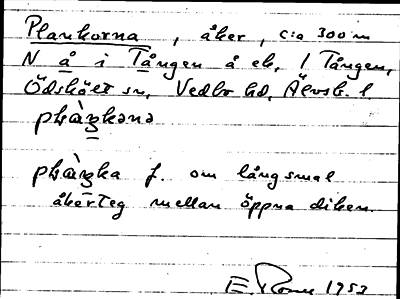 Plankorna, åker, c:a 300 m
N å i Tången å ek. 1 Tången,
Ödskölt sn, Vedbo hd, Älvsb. l.
f. om långsmal
åkerteg mellan öppna diken.
E. 1953